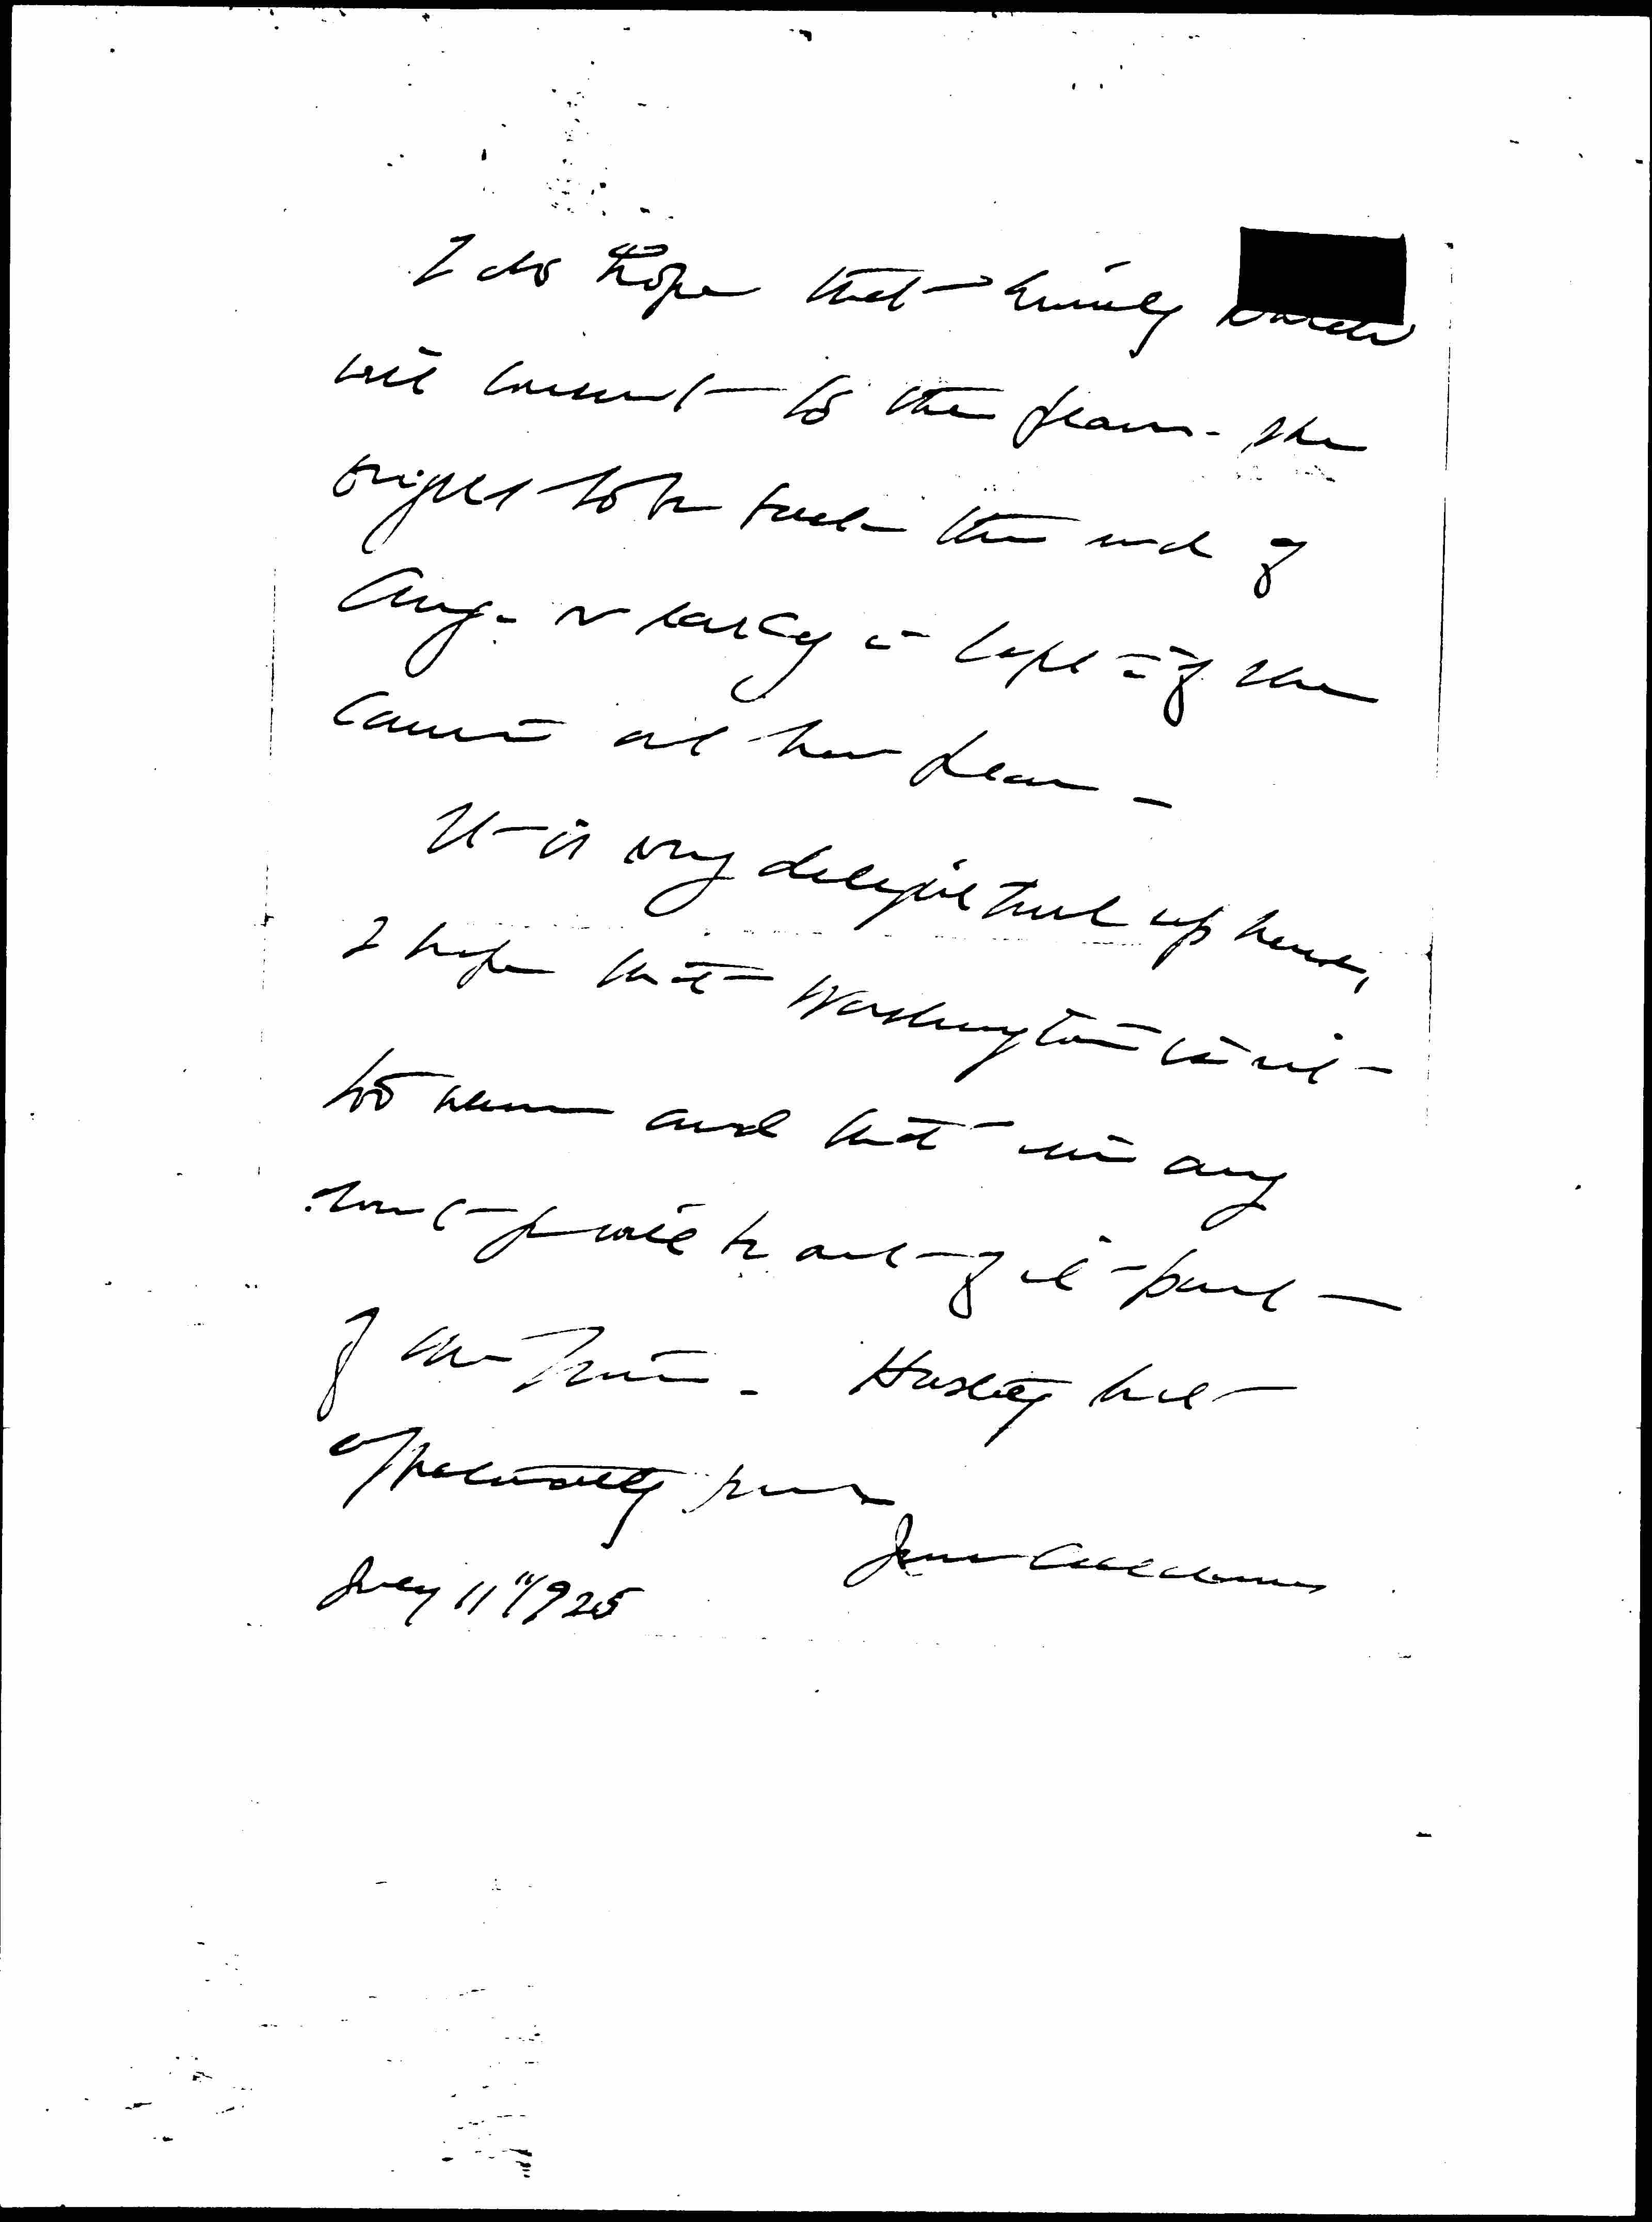 I do hope that Emily
will consent to the plan. She
ought to be back the end of
Aug. or early in Sept if she
carries out her plan -
It is very delightful up here,
I hope that Washington is not
too warm and that in any
event you will be out of it part
of the time. Hastily but
affectionately yours
Jane Addams
July 11" 1925